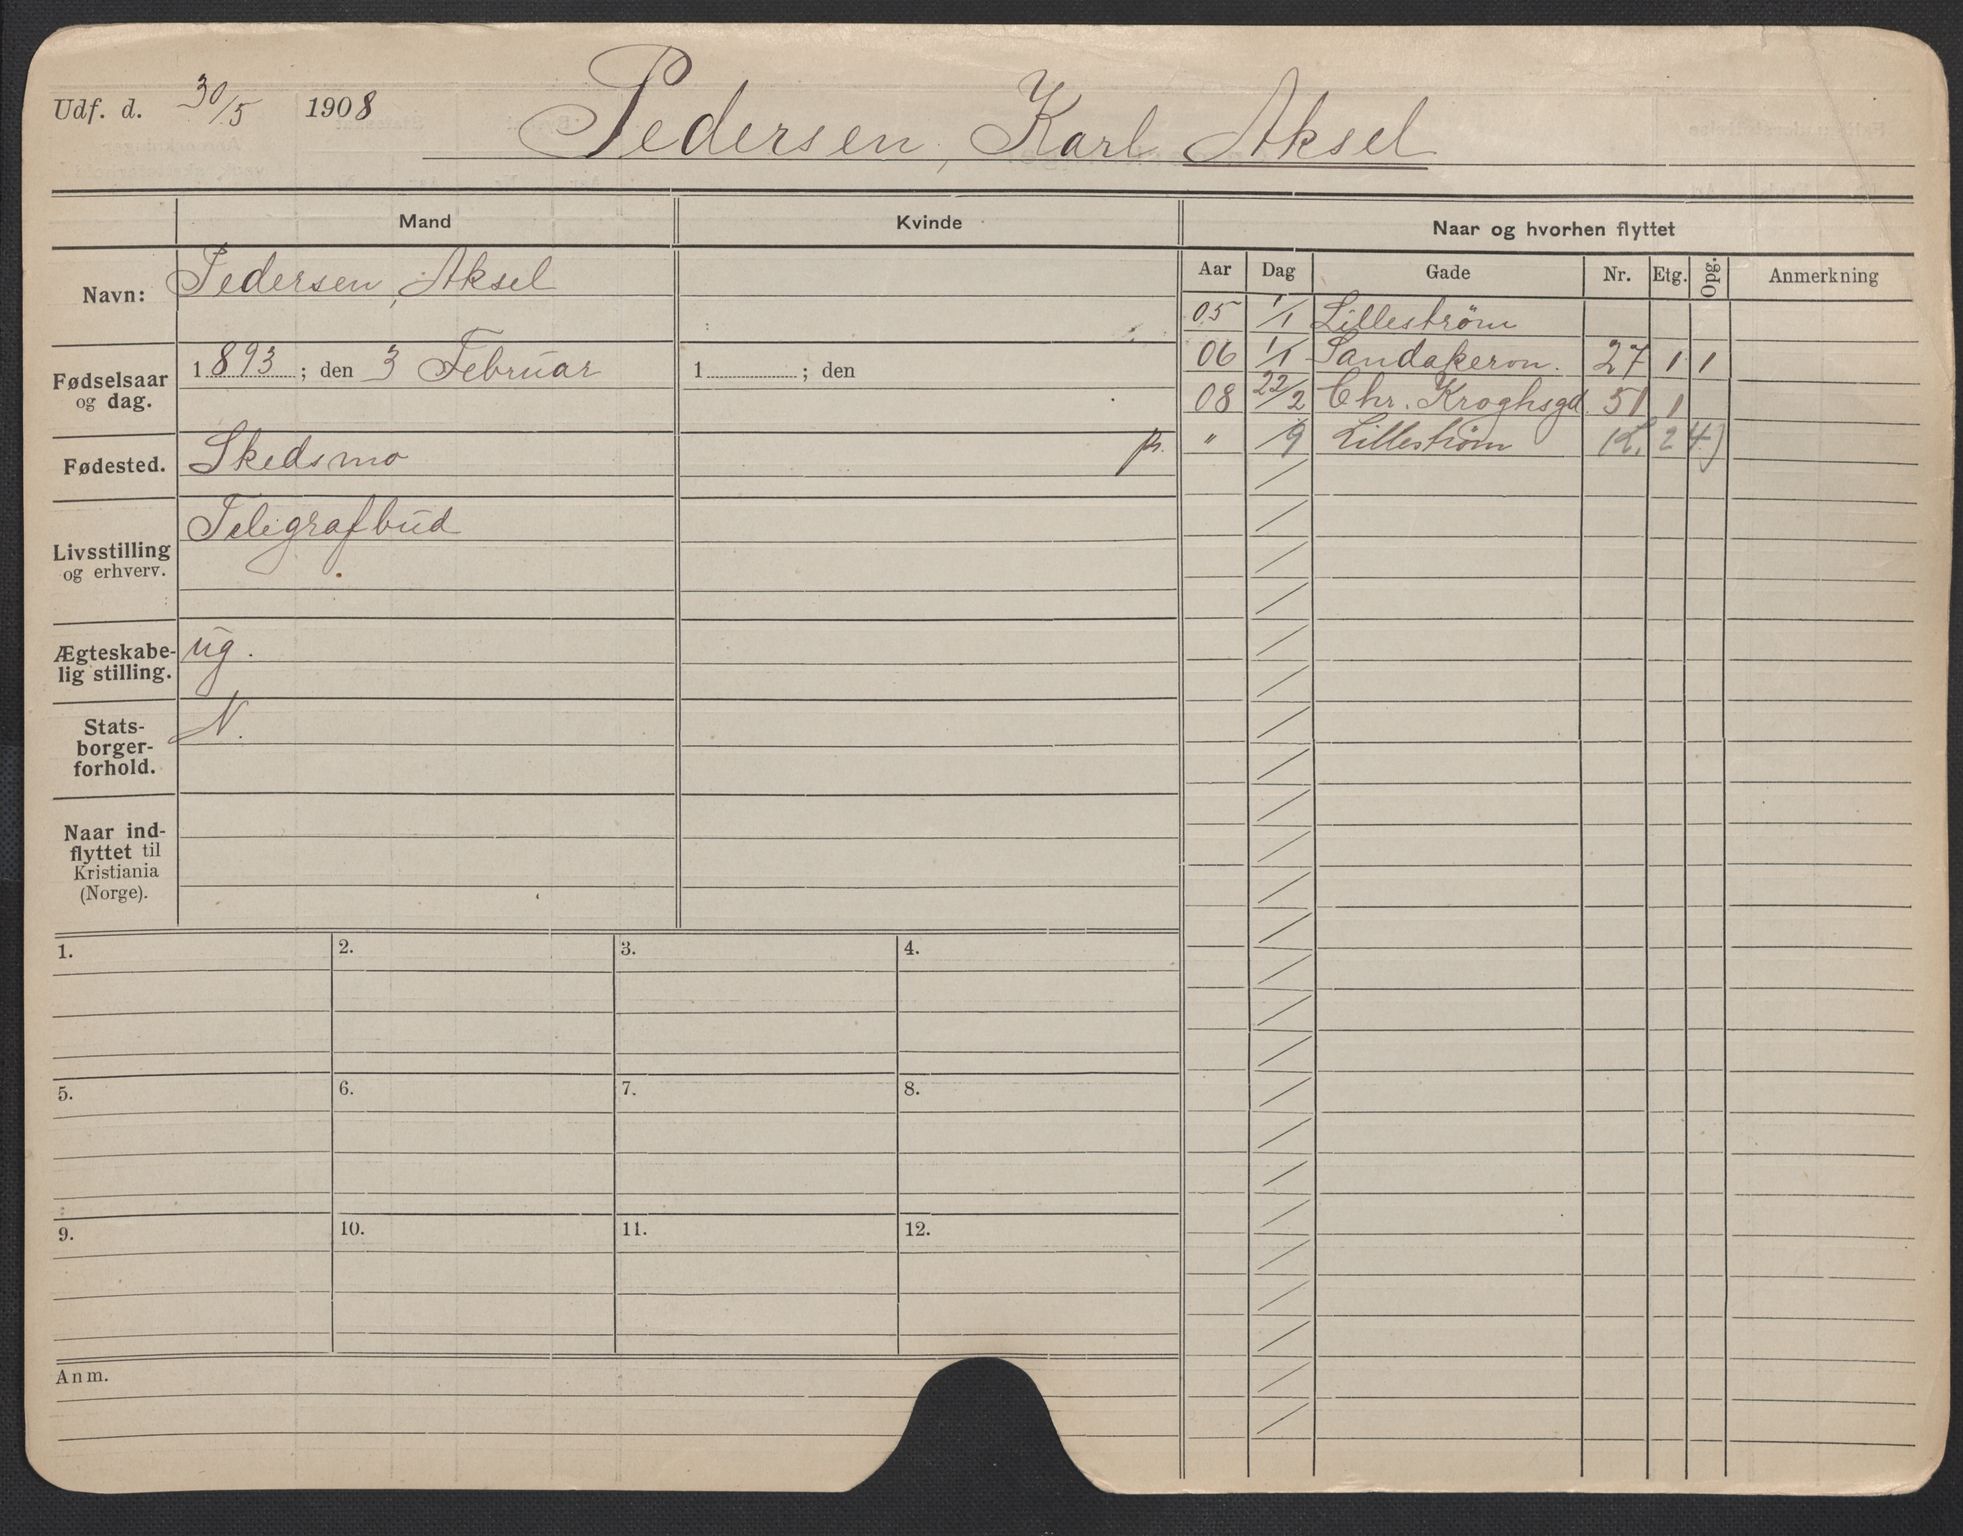 Udf. d. 30/5 1908 Pedersen, Karl Aksel
Mand Kvinde Naar og hvorhen flyttet
Aar Dag Gade Nr. Etg. Opg. Anmerkning
Navn: Pedersen, Aksel
05 1/1 Lilleström
06 1/1 Sandakeron. 27 1 1
Fødselsaar og dag. 1893; den 3 Februar 1 ; den
08 22/2 Chr. Kroghsgd. 51 1
Fødested. Skedsmo
" /9 Lilleström (L. 24)
Livsstilling og erhverv. Telegrafbud
Ægteskabe-
lig stilling. ug.
Stats-
borger-
forhold. N.
Naar ind-
flyttet til
Kristiania
(Norge).
1. 2. 3. 4.
5. 6. 7. 8.
9. 10. 11. 12.
Anm.